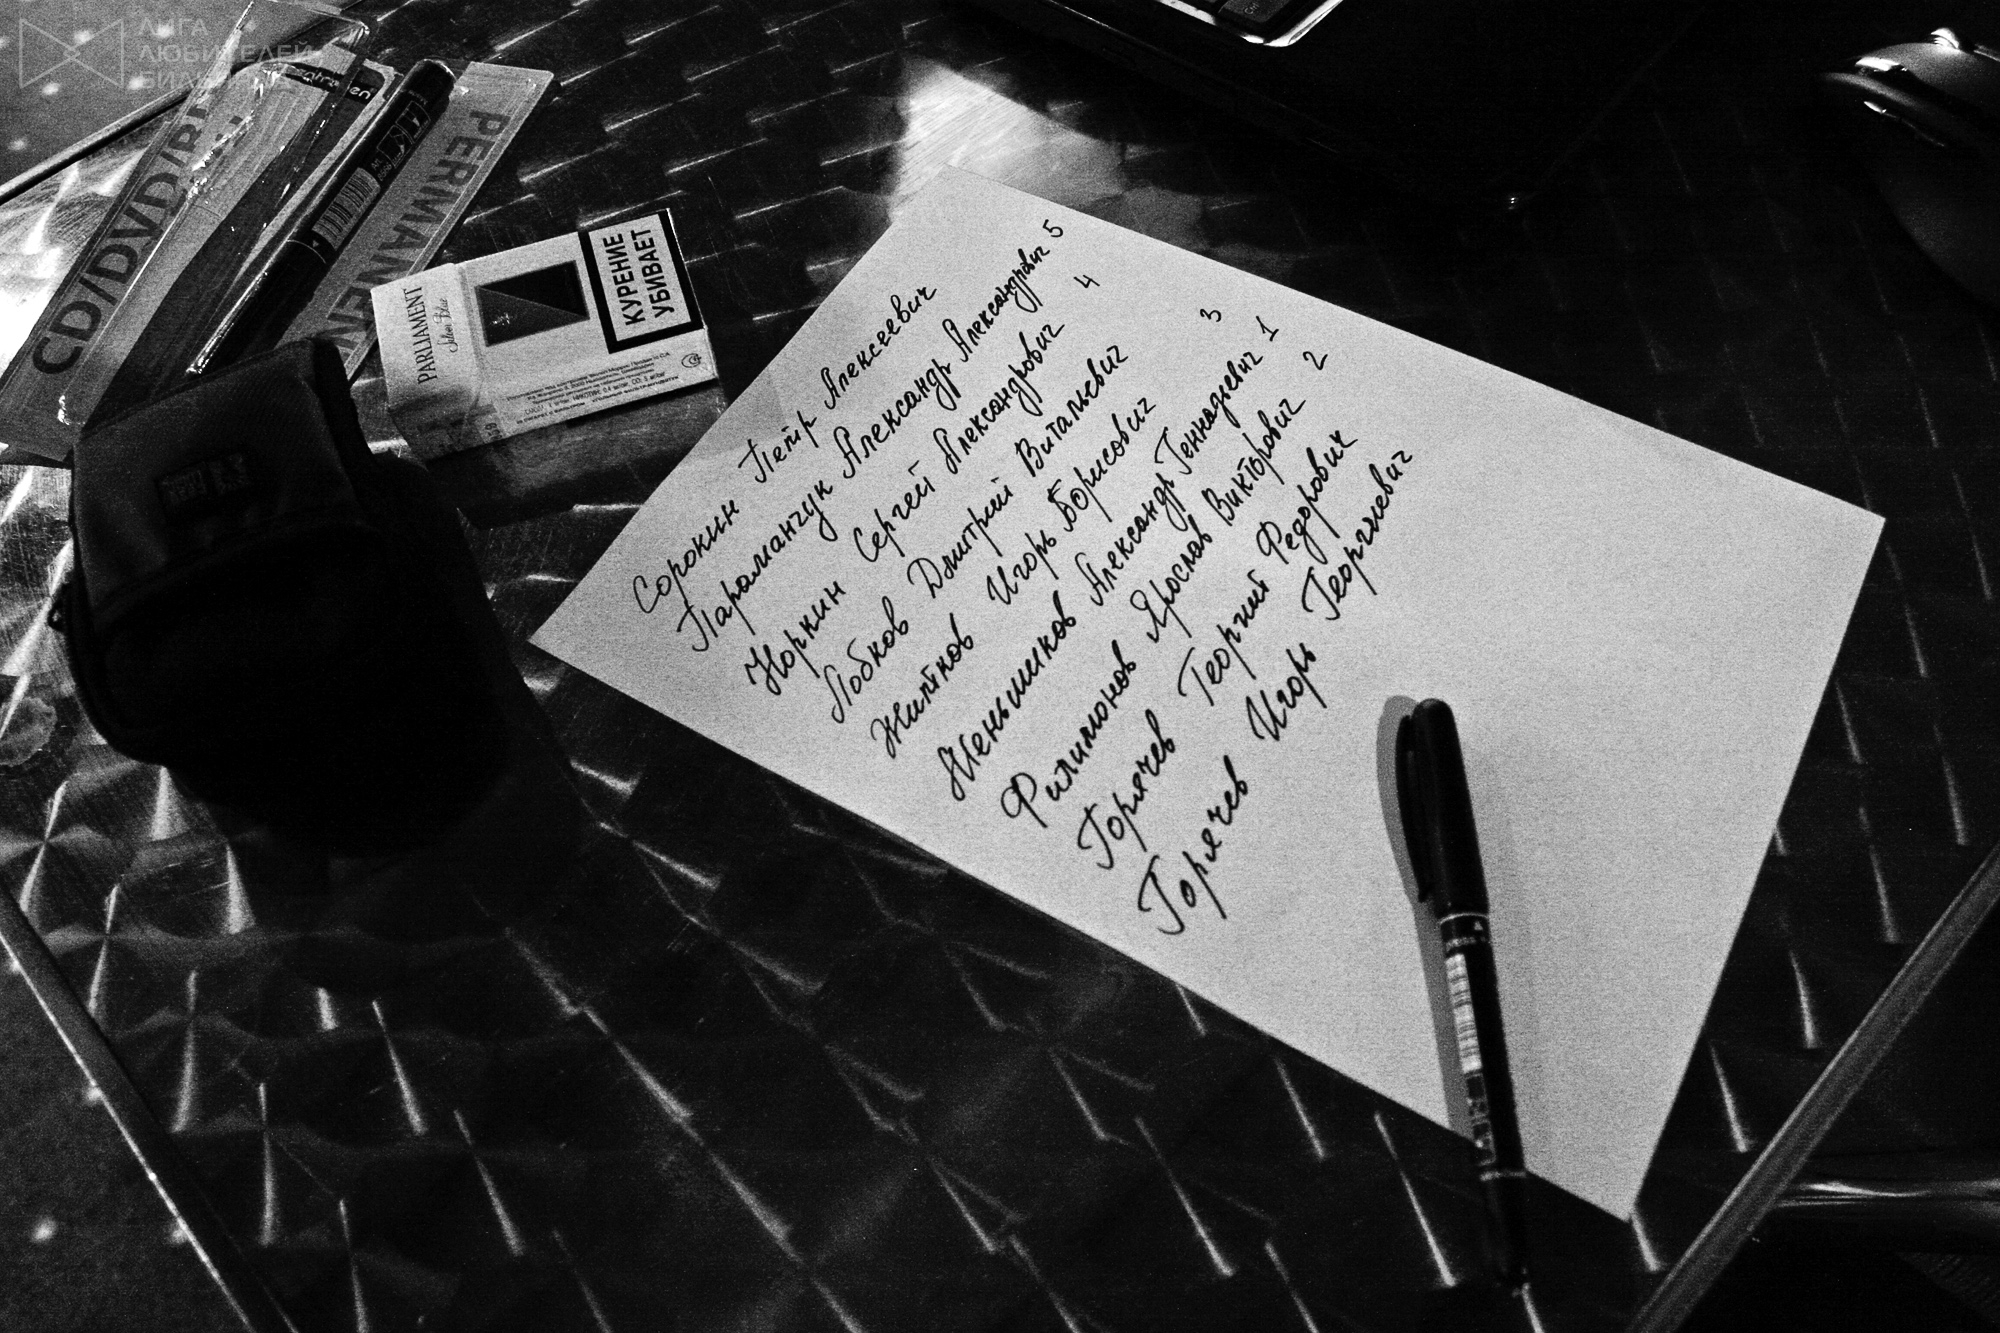 ЛИГА
ЛЮБИТЕЛЕЙ
CD/DVD/
PERMANEN
PARLIAMENT
КУРЕНИЕ
УБИВАЕТ
Сорокин Петр Алексеевич
Параманчук Александр Александрович 5
Норкин Сергей Александрович 4
Лобков Дмитрий Витальевич
Житков Игорь Борисович 3
Меньшиков Александр Геннадиевич 1
Филимонов Ярослав Викторович 2
Горячев Георгий Федорович
Горячев Игорь Георгиевич